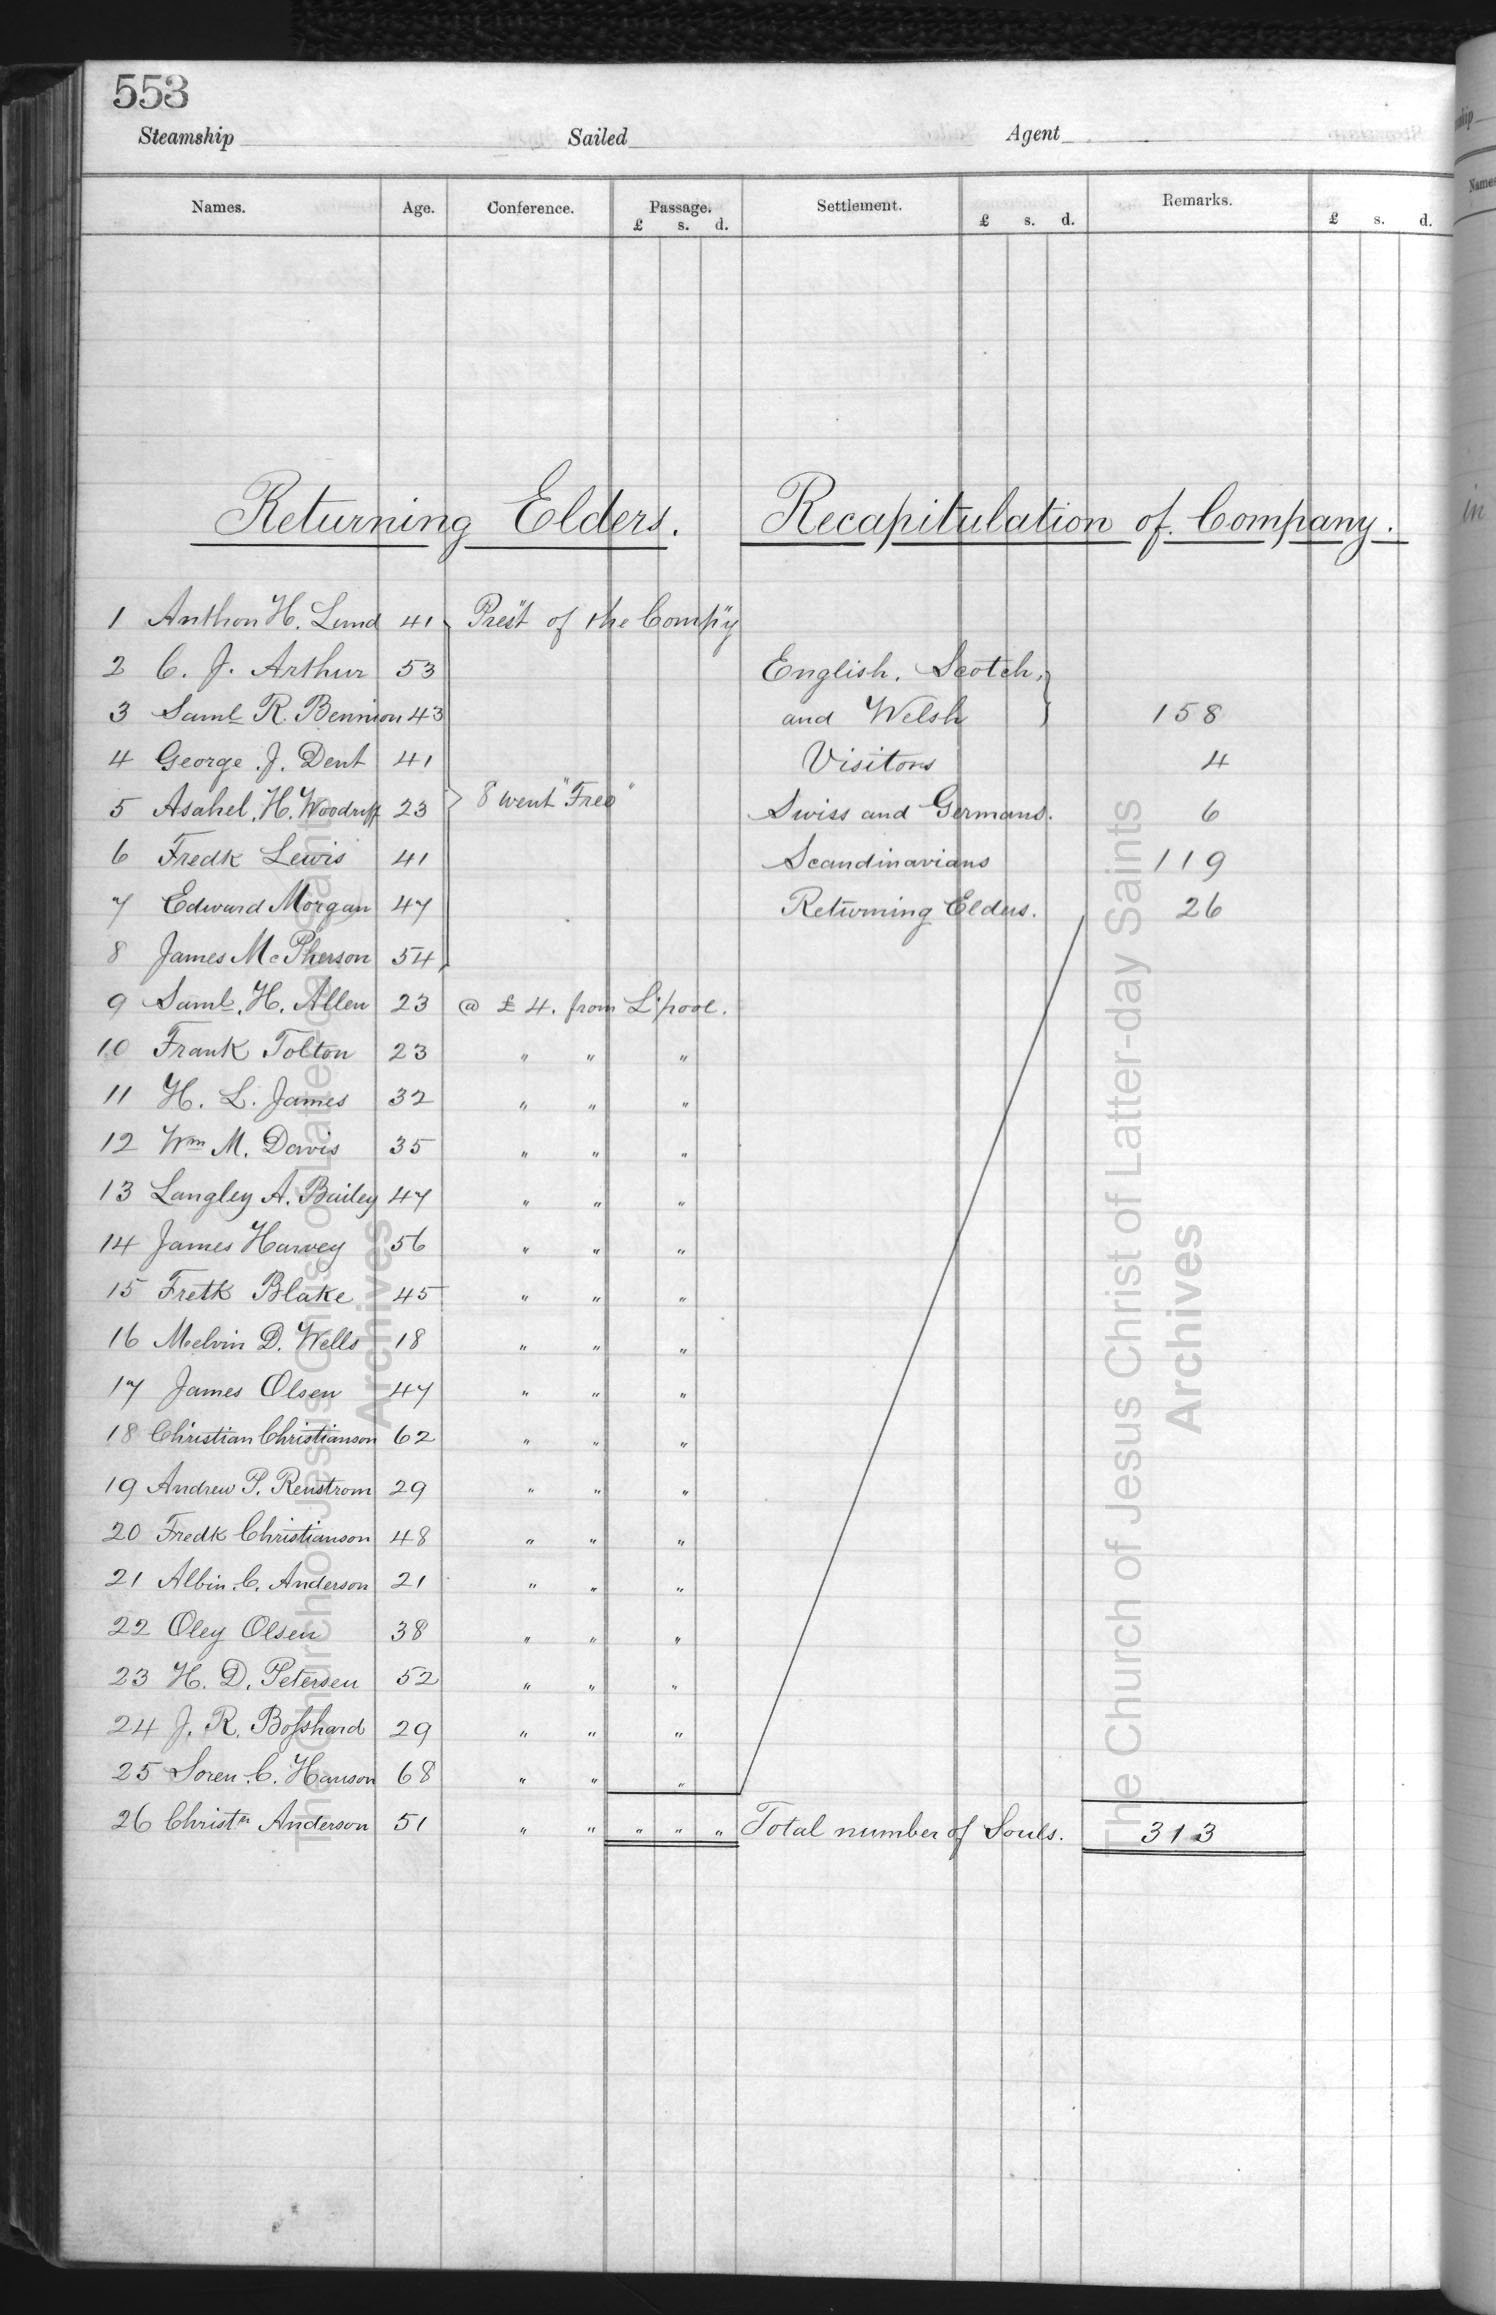 553
Steamship Sailed Agent
Names. Age. Conference. Passage. Settlement. Remarks.
£ s. d. £ s. d. £ s. d.
Returning Elders. Recapitulation of Company.
1 Anthon H. Lund 41 Pres't of the Comp'y
2 C. J. Arthur 53 English, Scotch,
3 Saml R. Bennion 43 and Welsh 158
4 George J. Dent 41 Visitors 4
5 Asahel H. Woodruff 23 8 went "Free" Swiss and Germans. 6
6 Fredk Lewis 41 Scandinavians 119
7 Edward Morgan 47 Returning Elders. 26
8 James McPherson 54
9 Saml. H. Allen 23 @ £4. from L'pool.
10 Frank Tolton 23 " " "
11 H. L. James 32 " " "
12 Wm M. Davis 35 " " "
13 Langley A. Bailey 47 " " "
14 James Harvey 56 " " "
15 Fretk Blake 45 " " "
16 Melvin D. Wells 18 " " "
17 James Olsen 47 " " "
18 Christian Christianson 62 " " "
19 Andrew P. Renstrom 29 " " "
20 Fredk Christianson 48 " " "
21 Albin C. Anderson 21 " " "
22 Oley Olsen 38 " " "
23 H. D. Petersen 52 " " "
24 J. R. Bosshard 29 " " "
25 Soren C. Hanson 68 " " "
26 Christn Anderson 51 " " " " " Total number of Souls. 313
The Church of Jesus Christ of Latter-day Saints
Archives
The Church of Jesus Christ of Latter-day Saints
Archives
Names
in